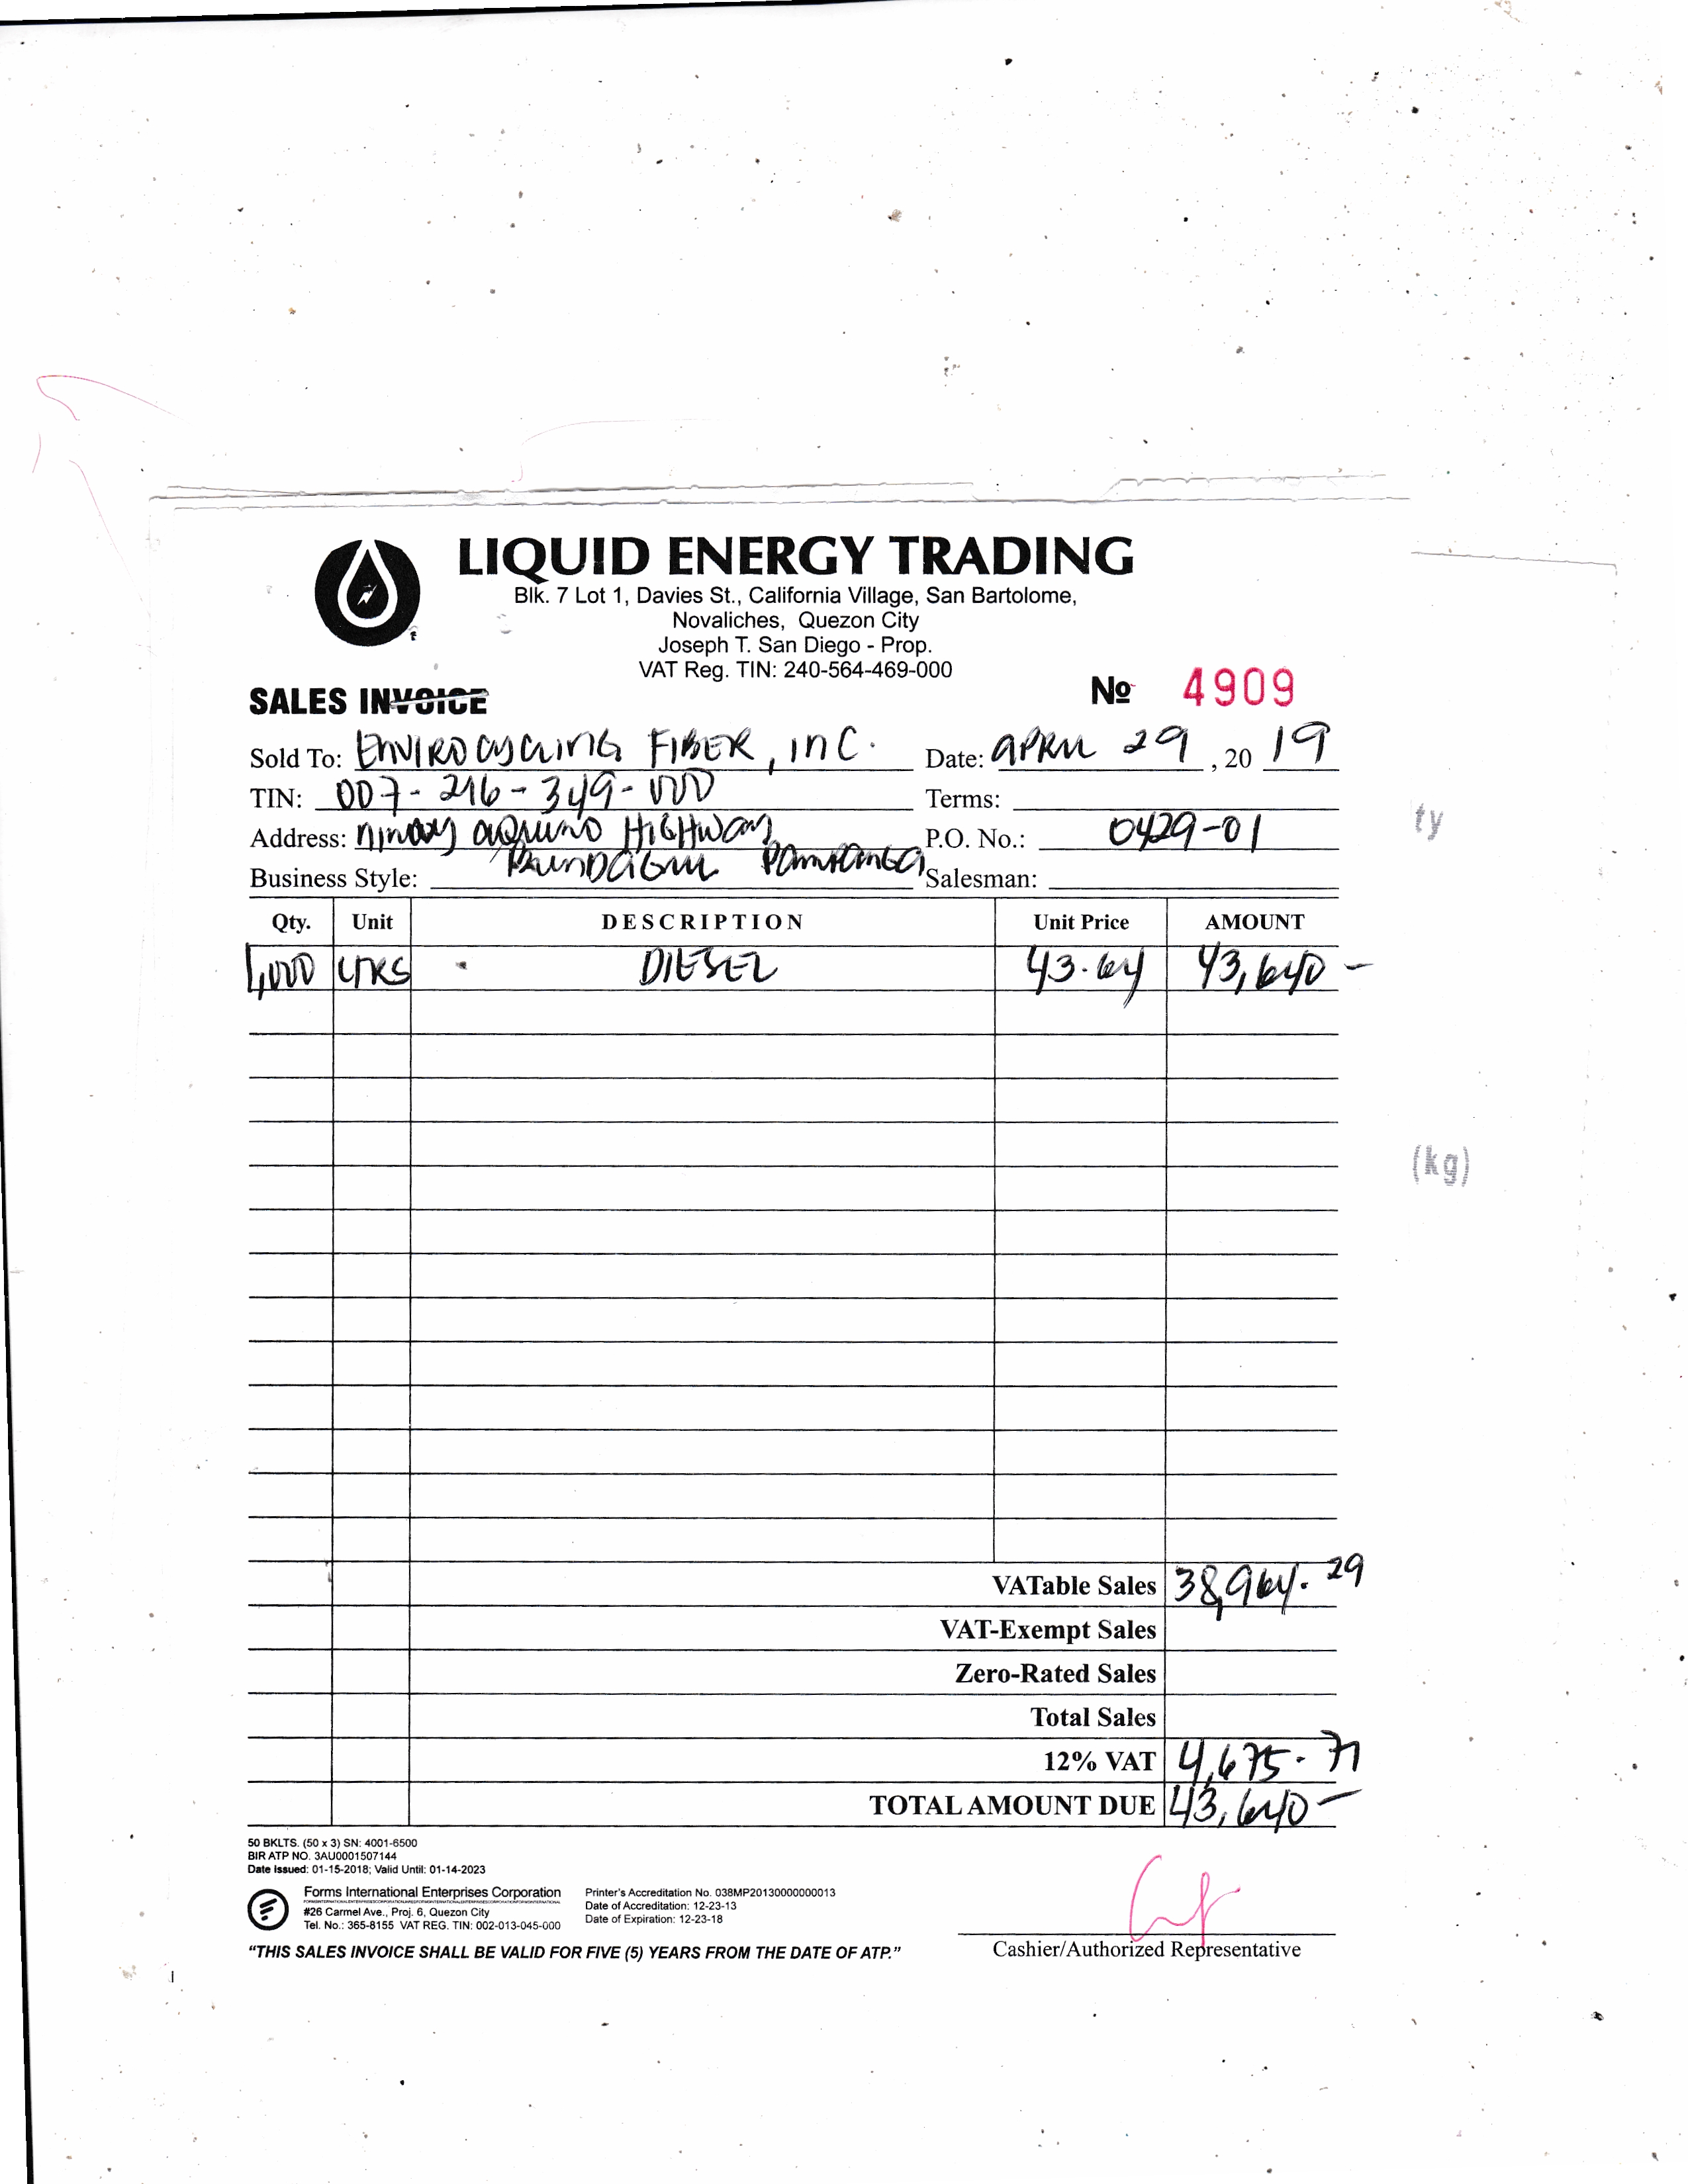 LIQUID ENERGY TRADING
Blk. 7 Lot 1, Davies St., California Village, San Bartolome,
Novaliches, Quezon City
Joseph T. San Diego - Prop.
VAT Reg. TIN: 240-564-469-000
SALES INVOICE № 4909
Sold To: ENVIROCYCLING FIBER, INC. Date: APRIL 29, 20 19
TIN: 007-216-349-000 Terms:
Address: NINOY AQUINO HIGHWAY P.O. No.: 0429-01
PAMPANGA
Business Style: Salesman:
Qty. Unit DESCRIPTION Unit Price AMOUNT
1,000 LTRS DIESEL 43.64 43,640-
VATable Sales 38,964.29
VAT-Exempt Sales
Zero-Rated Sales
Total Sales
12% VAT 4,675.71
TOTAL AMOUNT DUE 43,640-
50 BKLTS. (50 x 3) SN: 4001-6500
BIR ATP NO. 3AU0001507144
Date Issued: 01-15-2018; Valid Until: 01-14-2023
Forms International Enterprises Corporation
#26 Carmel Ave., Proj. 6, Quezon City
Tel. No.: 365-8155 VAT REG. TIN: 002-013-045-000
Printer's Accreditation No. 038MP20130000000013
Date of Accreditation: 12-23-13
Date of Expiration: 12-23-18
"THIS SALES INVOICE SHALL BE VALID FOR FIVE (5) YEARS FROM THE DATE OF ATP."
Cashier/Authorized Representative
ty
(kg)